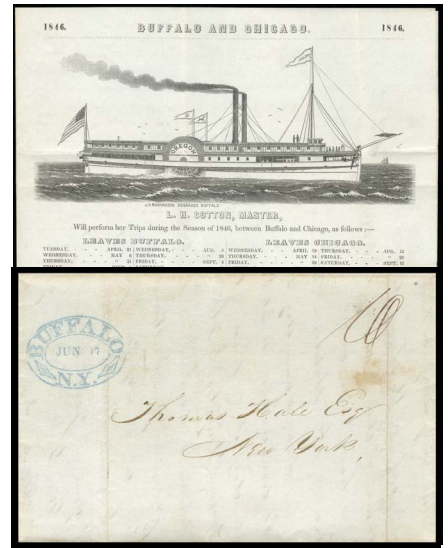 1846. BUFFALO AND CHICAGO. 1846.
OREGON
L. H. COTTON, MASTER,
Will perform her Trips during the Season of 1846, between Buffalo and Chicago, as follows :—
LEAVES BUFFALO. LEAVES CHICAGO.
TUESDAY, APRIL
WEDNESDAY, MAY 6
THURSDAY, 21
AUG. 5
THURSDAY, 20
FRIDAY, SEPT. 4
WEDNESDAY, APRIL
THURSDAY, MAY 14
FRIDAY, 29
THURSDAY, AUG.
FRIDAY, 28
SATURDAY, SEPT. 12
BUFFALO
JUN 17
N.Y.
10
Thomas Hale Esq
New York